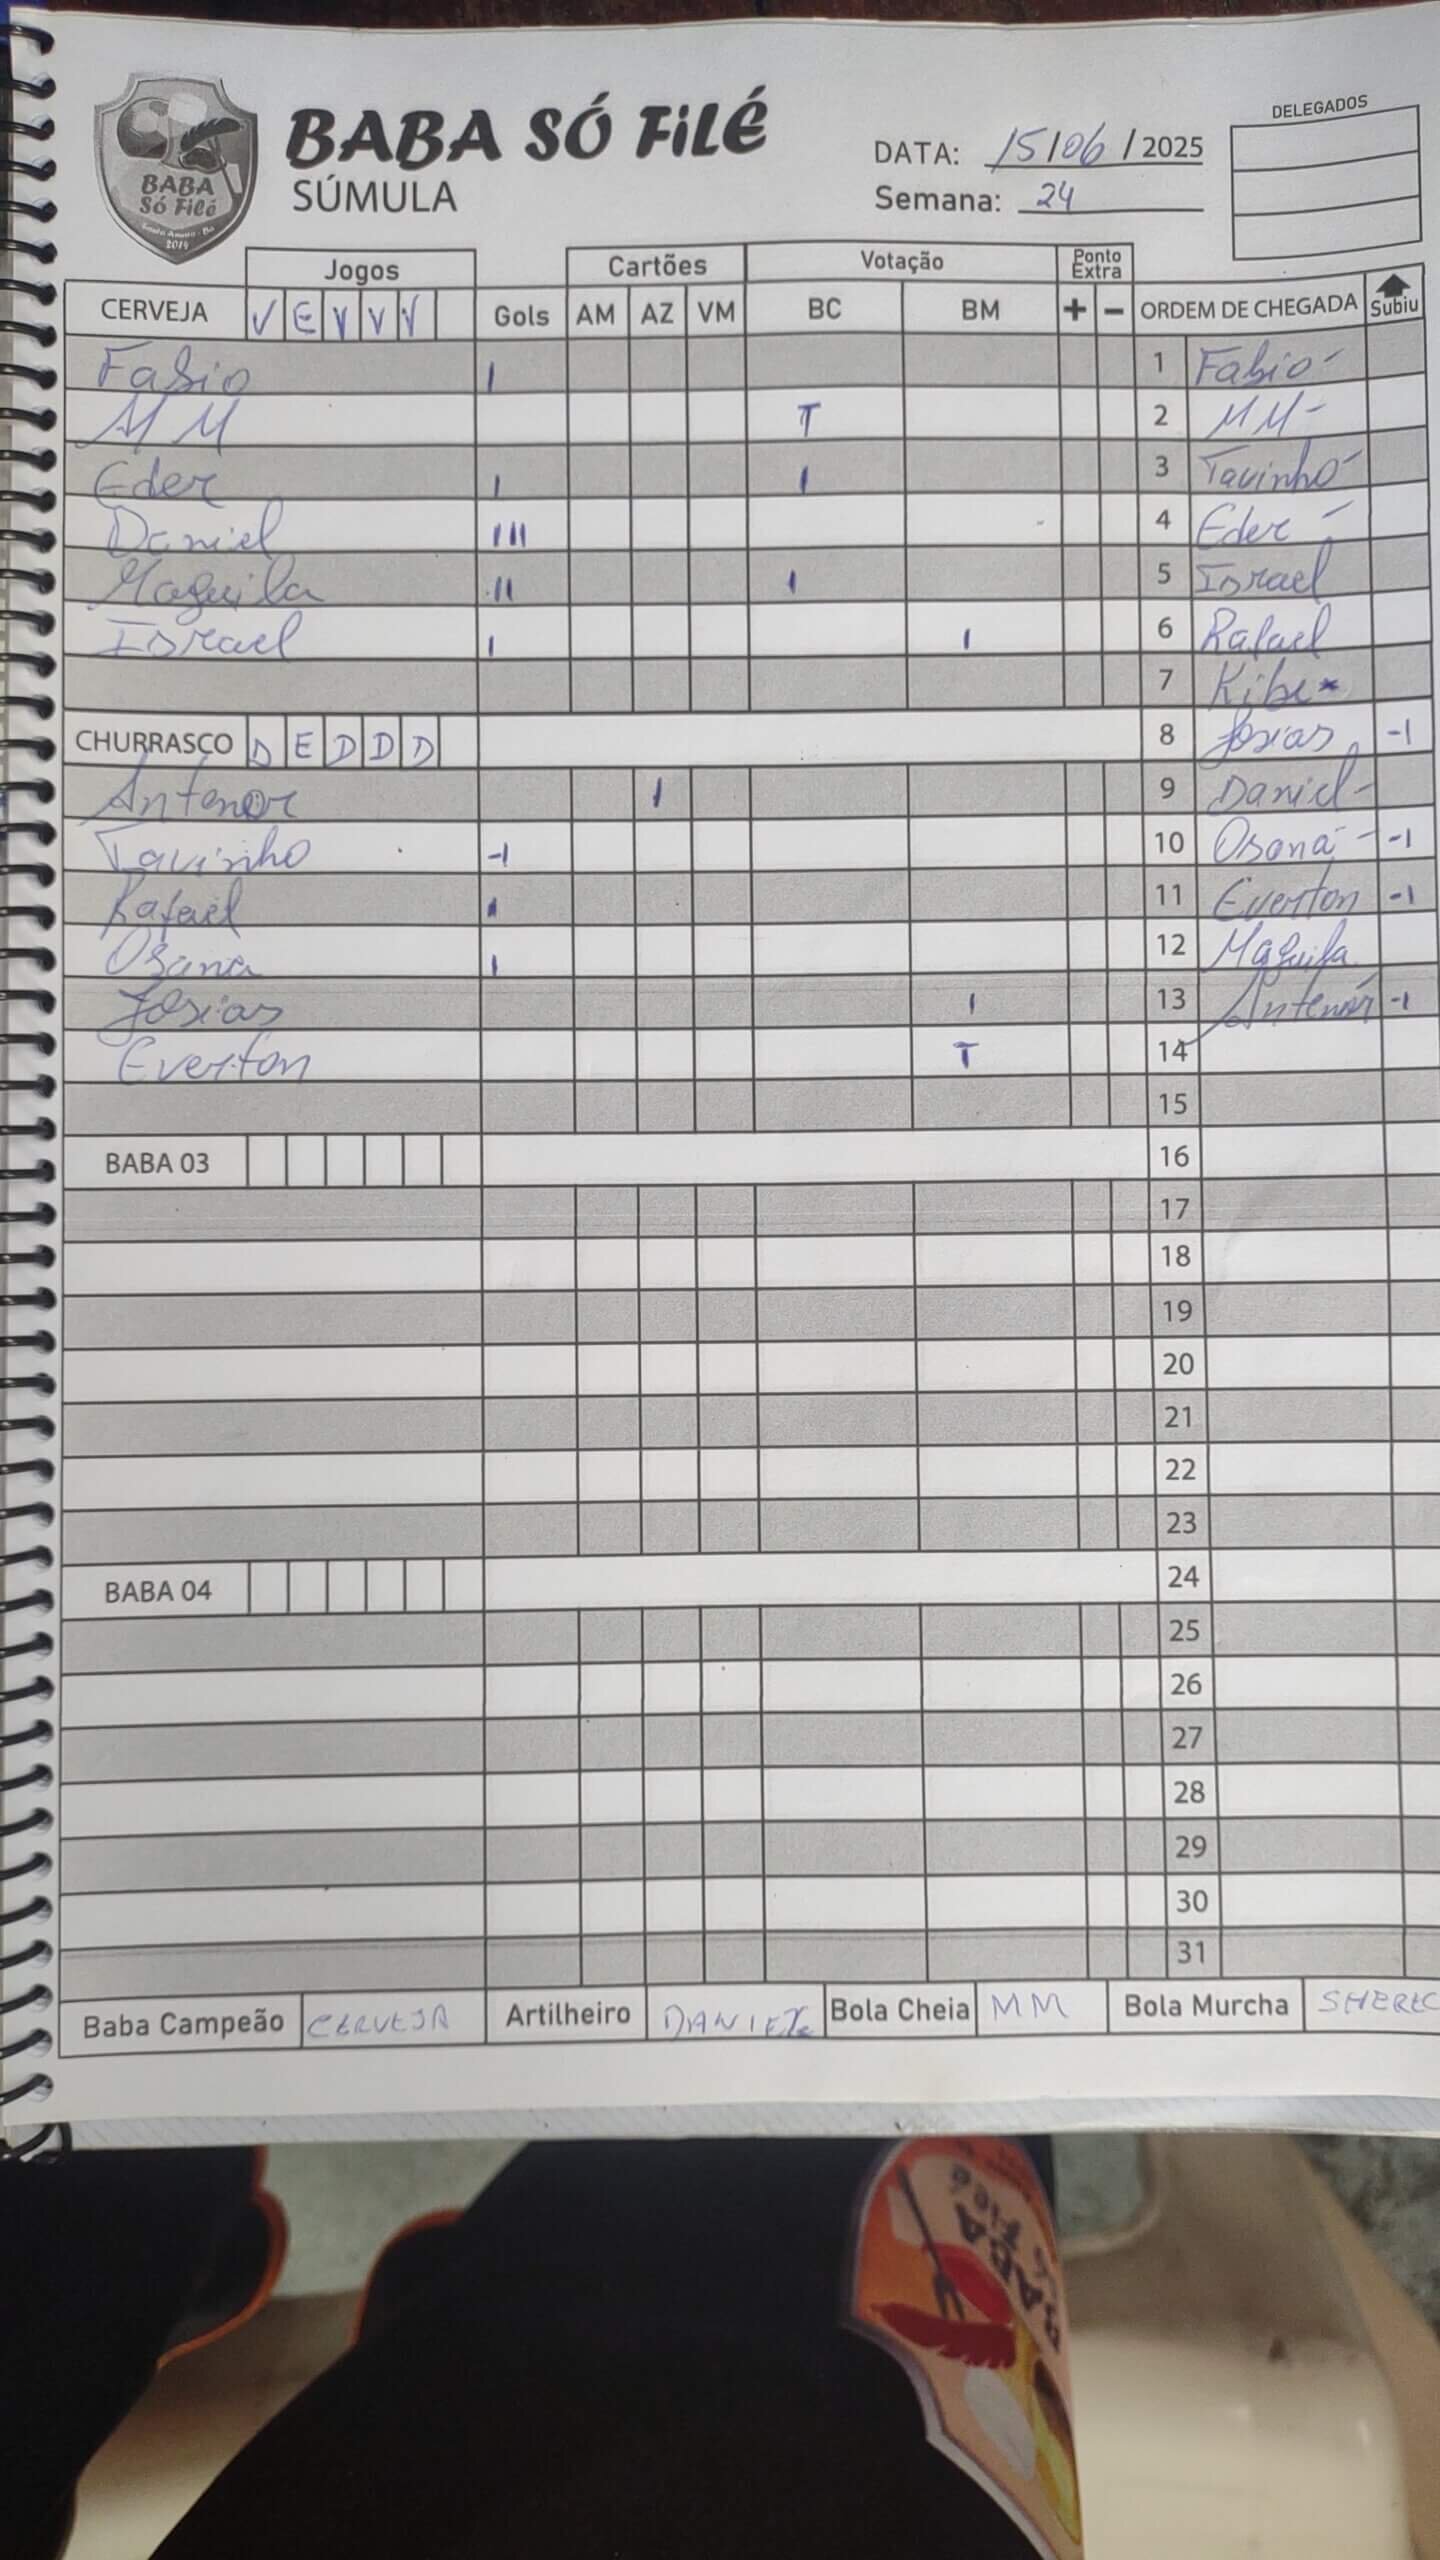 BABA SÓ FiLÉ
SÚMULA
BABA
Só Filé
Santo Amaro - Ba
2014
DATA: 15/06/2025
Semana: 24
DELEGADOS
Jogos Cartões Votação Ponto Extra
CERVEJA V E V V V Gols AM AZ VM BC BM + - ORDEM DE CHEGADA Subiu
Fabio I 1 Fabio -
MM T 2 MM -
Eder I I 3 Tavinho -
Daniel III 4 Eder -
Maguila II I 5 Israel
Israel I I 6 Rafael
7 Kibe
CHURRASCO D E D D D 8 Josias -1
Antenor I 9 Daniel -
Tavinho -1 10 Osana - -1
Rafael I 11 Everton -1
Osana I 12 Maguila
Josias I 13 Antenor -1
Everton T 14
15
BABA 03 16
17
18
19
20
21
22
23
BABA 04 24
25
26
27
28
29
30
31
Baba Campeão CERVEJA Artilheiro DANIEL Bola Cheia MM Bola Murcha SHEREC
BABA